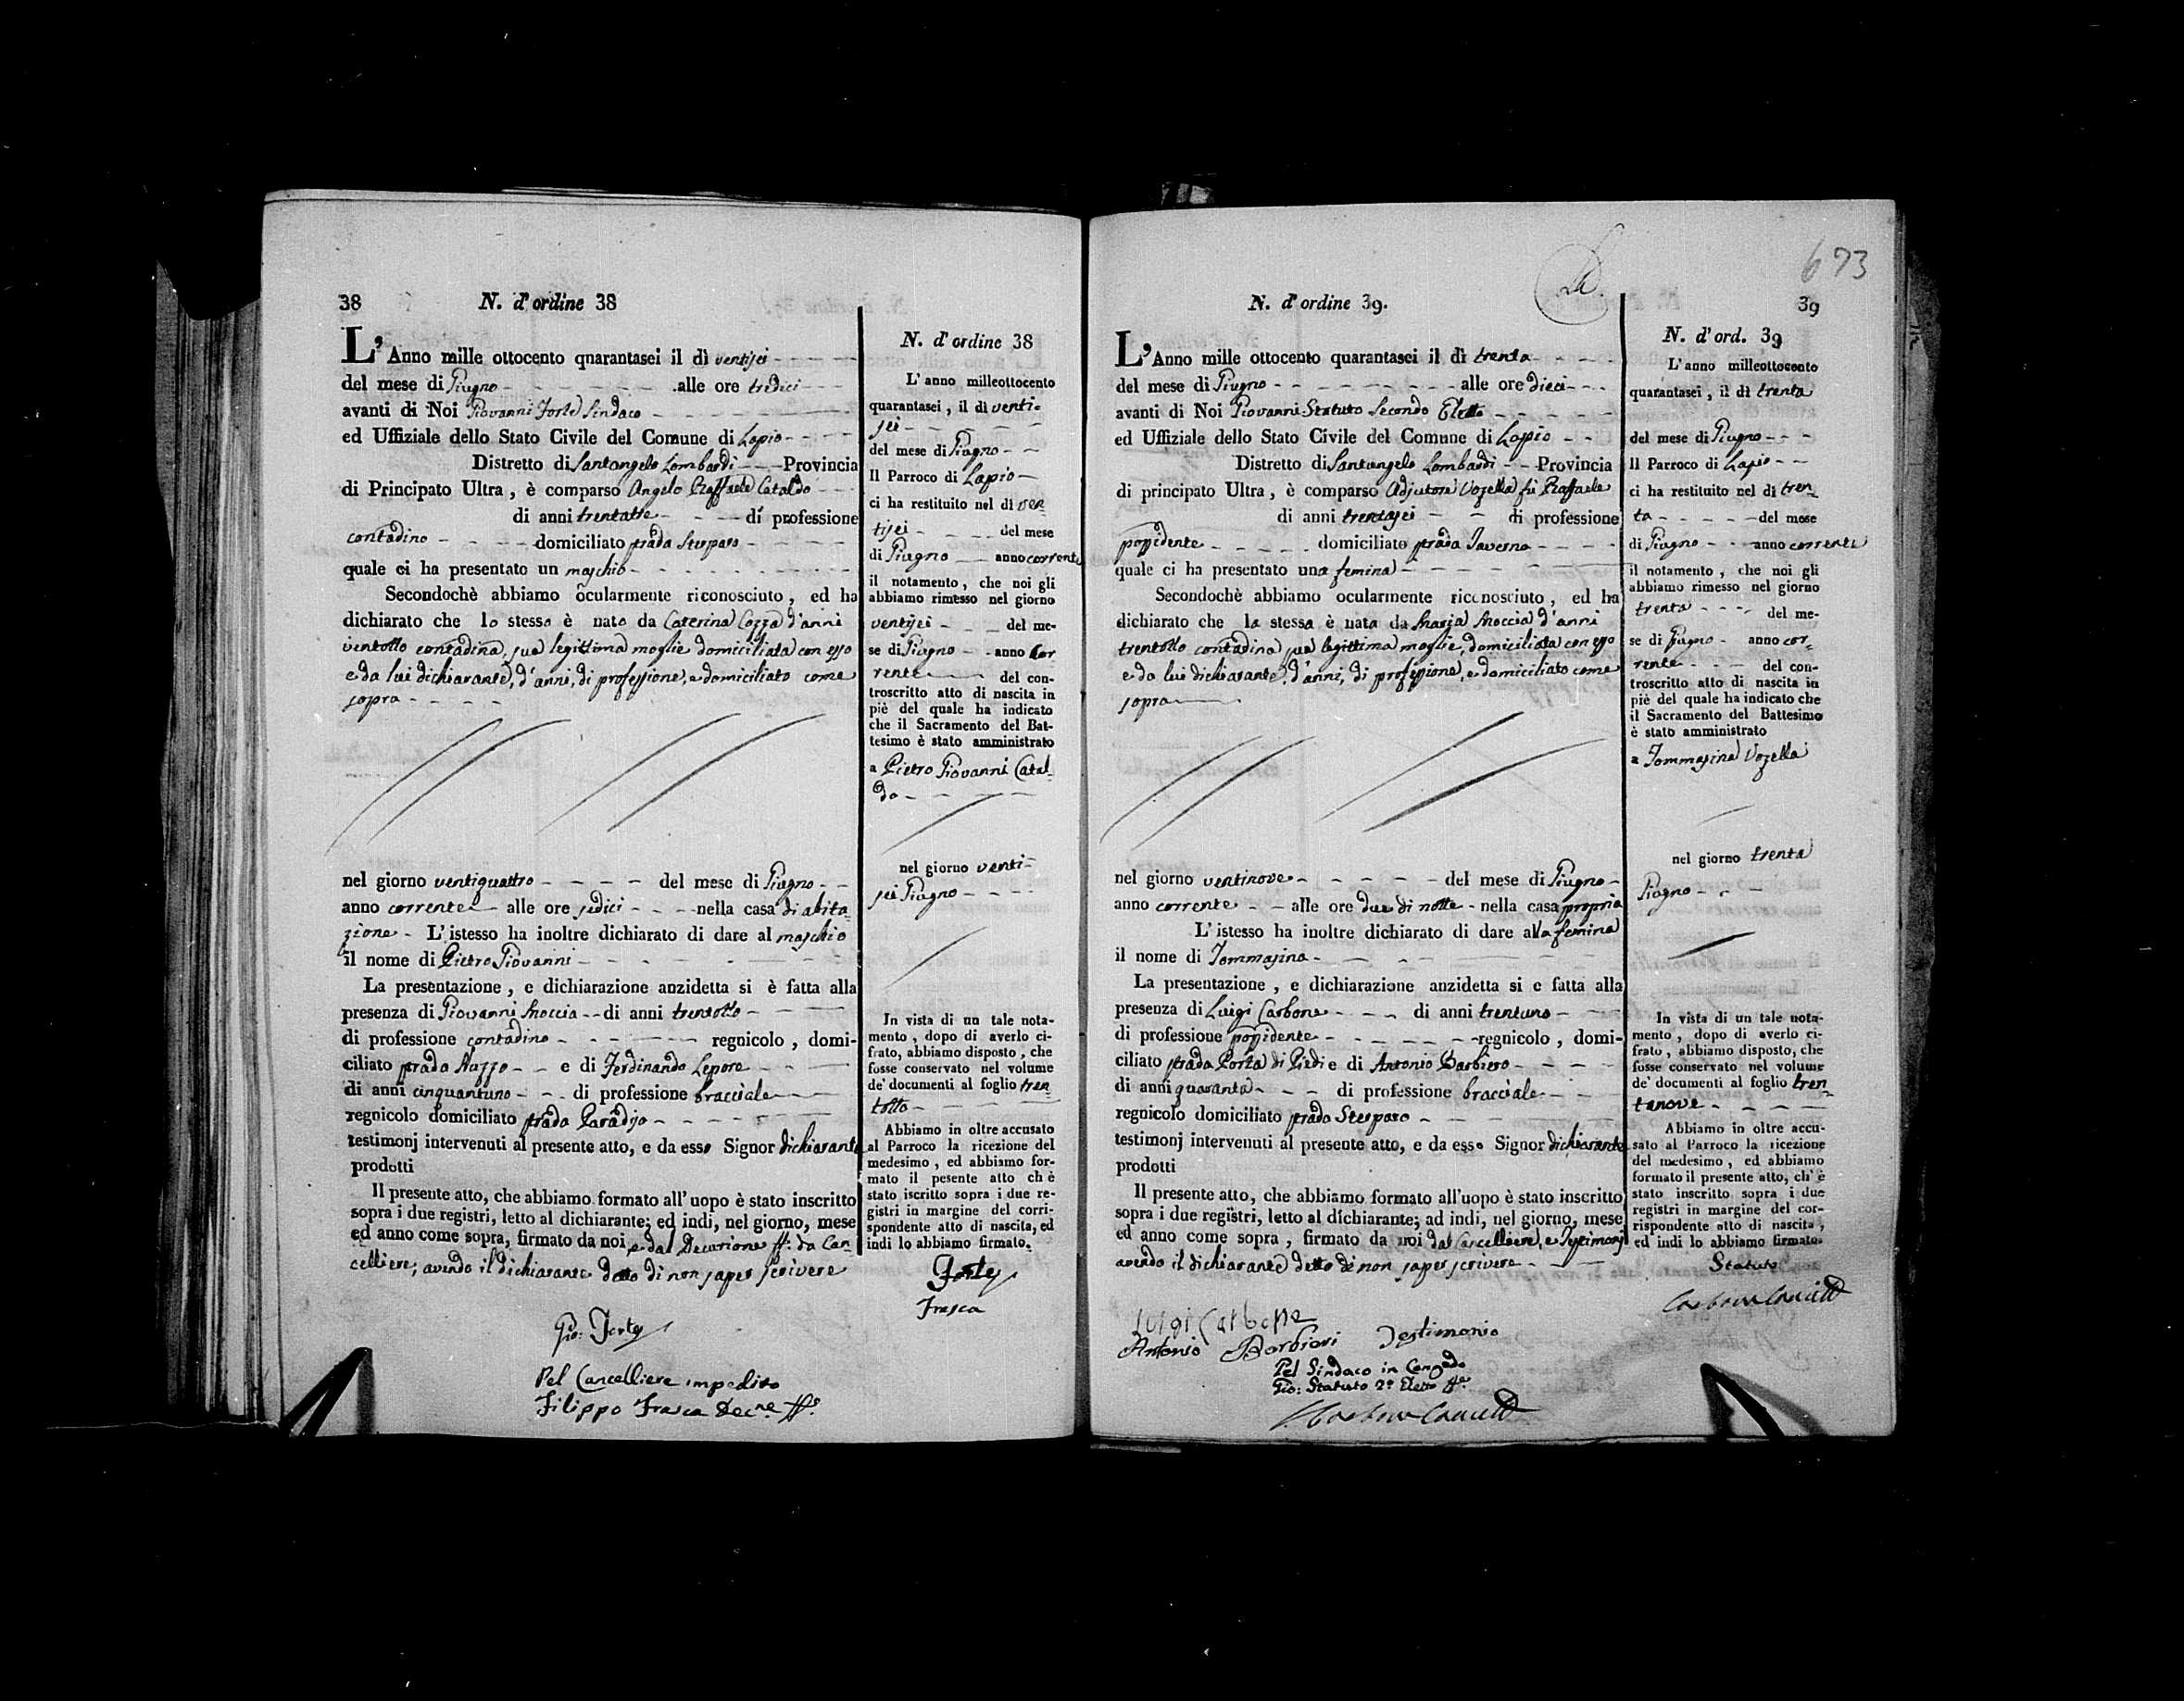 38
N. d'ordine 38
L'Anno mille ottocento quarantasei il dì ventisei
del mese di Giugno alle ore tredici
avanti di Noi Giovanni Forte Sindaco
ed Uffiziale dello Stato Civile del Comune di Lapio
Distretto di Santangelo Lombardi Provincia
di Principato Ultra, è comparso Angelo Raffaele Cataldo
di anni trentatre di professione
contadino domiciliato strada Sterparo
quale ci ha presentato un maschio
Secondochè abbiamo ocularmente riconosciuto, ed ha
dichiarato che lo stesso è nato da Caterina Cozza d'anni
ventotto contadina, sua legittima moglie domiciliata con esso
e da lui dichiarante, d'anni, di professione, e domiciliato come
sopra
nel giorno ventiquattro del mese di Giugno
anno corrente alle ore sedici nella casa di abita-
zione L'istesso ha inoltre dichiarato di dare al maschio
il nome di Pietro Giovanni
La presentazione, e dichiarazione anzidetta si è fatta alla
presenza di Giovanni Moccia di anni trentotto
di professione contadino regnicolo, domi-
ciliato strada e di Ferdinando Lepore
di anni cinquantuno di professione bracciale
regnicolo domiciliato strada Paradiso
testimonj intervenuti al presente atto, e da esso Signor dichiarante
prodotti
Il presente atto, che abbiamo formato all'uopo è stato inscritto
sopra i due registri, letto al dichiarante; ed indi, nel giorno, mese
ed anno come sopra, firmato da noi, e dal Decurione ff: da Can-
celliere; avendo il dichiarante detto di non saper scrivere
Gio: Forte
Pel Cancelliere impedito
Filippo Frasca Dec.ne ff.
N. d'ordine 38
L'anno milleottocento
quarantasei, il dì venti-
sei
del mese di Giugno
Il Parroco di Lapio
ci ha restituito nel dì ven-
tisei del mese
di Giugno anno corrente
il notamento, che noi gli
abbiamo rimesso nel giorno
ventisei del me-
se di Giugno anno cor-
rente del con-
troscritto atto di nascita in
piè del quale ha indicato
che il Sacramento del Bat-
tesimo è stato amministrato
a Pietro Giovanni Catal-
do
nel giorno venti-
sei Giugno
In vista di un tale nota-
mento, dopo di averlo ci-
frato, abbiamo disposto, che
fosse conservato nel volume
de' documenti al foglio tren-
totto
Abbiamo in oltre accusato
al Parroco la ricezione del
medesimo, ed abbiamo for-
mato il pesente atto ch è
stato iscritto sopra i due re-
gistri in margine del corri-
spondente atto di nascita, ed
indi lo abbiamo firmato.
Forte
Frasca
673
39
N. d'ordine 39.
L'Anno mille ottocento quarantasei il dì trenta
del mese di Giugno alle ore dieci
avanti di Noi Giovanni Statuto Secondo Eletto
ed Uffiziale dello Stato Civile del Comune di Lapio
Distretto di Santangelo Lombardi Provincia
di principato Ultra, è comparso Adjutore Vozella fu Raffaele
di anni trentasei di professione
possidente domiciliato strada Taverna
quale ci ha presentato una femina
Secondochè abbiamo ocularmente riconosciuto, ed ha
dichiarato che la stessa è nata da Maria Moccia d'anni
trentotto contadina sua legittima moglie, domiciliata con esso
e da lui dichiarante, d'anni, di professione, e domiciliato come
sopra
nel giorno ventinove del mese di Giugno
anno corrente alle ore due di notte nella casa propria
L'istesso ha inoltre dichiarato di dare alla femina
il nome di Tommasina
La presentazione, e dichiarazione anzidetta si e fatta alla
presenza di Luigi Carbone di anni trentuno
di professione possidente regnicolo, domi-
ciliato strada Porta di Piedi e di Antonio Barbiero
di anni quaranta di professione bracciale
regnicolo domiciliato strada Sterparo
testimonj intervenuti al presente atto, e da esso Signor dichiarante
prodotti
Il presente atto, che abbiamo formato all'uopo è stato inscritto
sopra i due registri, letto al dichiarante; ad indi, nel giorno, mese
ed anno come sopra, firmato da noi dal Cancelliere, e Testimonj
avendo il dichiarante detto di non saper scrivere
Luigi Carbone
Antonio Barbieri Testimonio
Pel Sindaco in Congedo
Gio: Statuto 2º Eletto ff.
N. d'ord. 39
L'anno milleottocento
quarantasei, il dì trenta
del mese di Giugno
Il Parroco di Lapio
ci ha restituito nel dì tren-
ta del mese
di Giugno anno corrente
il notamento, che noi gli
abbiamo rimesso nel giorno
trenta del me-
se di Giugno anno cor-
rente del con-
troscritto atto di nascita in
piè del quale ha indicato che
il Sacramento del Battesimo
è stato amministrato
a Tommasina Vozella
nel giorno trenta
Giugno
In vista di un tale nota-
mento, dopo di averlo ci-
frato, abbiamo disposto, che
fosse conservato nel volume
de' documenti al foglio tren-
tanove
Abbiamo in oltre accu-
sato al Parroco la ricezione
del medesimo, ed abbiamo
formato il presente atto, ch' è
stato inscritto sopra i due
registri in margine del cor-
rispondente atto di nascita,
ed indi lo abbiamo firmato.
Statuto